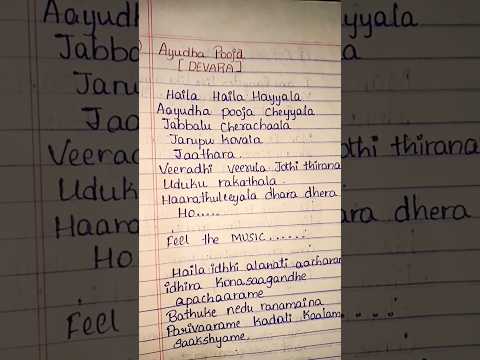 Ayudha Pooja
[DEVARA]
Haila Haila Hayyala
Aayudha pooja cheyyala
Jabbalu Cherachaala
Janupu kovala
Jaathara.
Veeradhi veerula Jothi thirana
Uduku rakathala.
Haarathuleeyala dhara dhera
Ho.....
Feel the MUSIC......
Haila idhhi alanati aacharam
idhira Konasaagandhe
apachaarame
Bathuke nedu ranamaina
Parivaarame kadali Kaalam
Saakshyame.